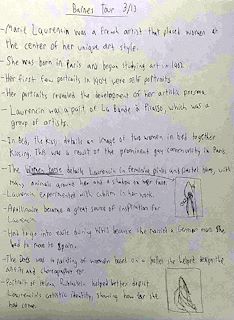 Barnes Tour 3/13
- Marie Laurencin was a French artist that placed women at
the center of her unique art style.
- She was born in Paris and began studying art in 1902.
- Her first few portraits in 1904 were self portraits
- Her portraits revealed the development of her artistic persona.
- Laurencin was a part of La bande à Picasso, which was a
group of artists.
- In bed, the Kiss, details an image of two women in bed together
kissing. This was a result of the prominent gay community in Paris.
- The Women Dogs details Laurencin in feminine pinks and pastel blues, with
many animals around her and a shadow on her face.
- Laurencin experimented with cubism in her work.
- Apollinaire became a great source of inspiration for
Laurencin.
- Had to go into exile during WWI because she married a German man. She
had to move to Spain.
- The Does was a painting of women based on a ballet she helped design the
outfits and choreographer for
- Portrait of Helena Rubinstein helped better depict
Laurencin's artistic identity, showing how far she
had come.